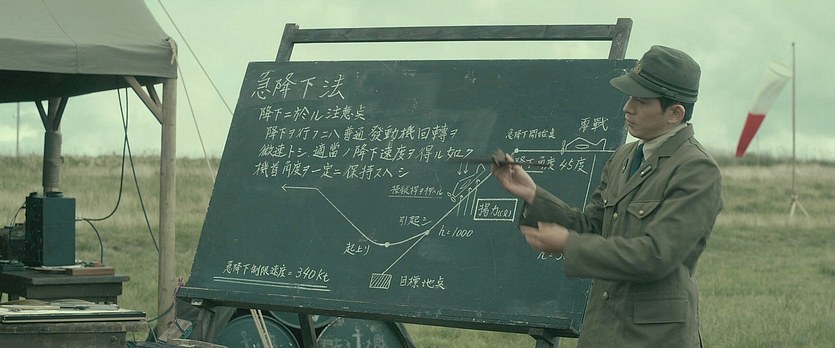 急降下法
降下ニ於ル注意点
降下ヲ行フニハ普通発動機回轉ヲ
微速トシ適當ノ降下速度ヲ得ル如ク
機首角度ヲ一定ニ保持スヘシ
零戦
急降下開始点
降下角度 45度
揚力
引起シ
h=1000
起上リ
目標地点
急降下制限速度=340kt